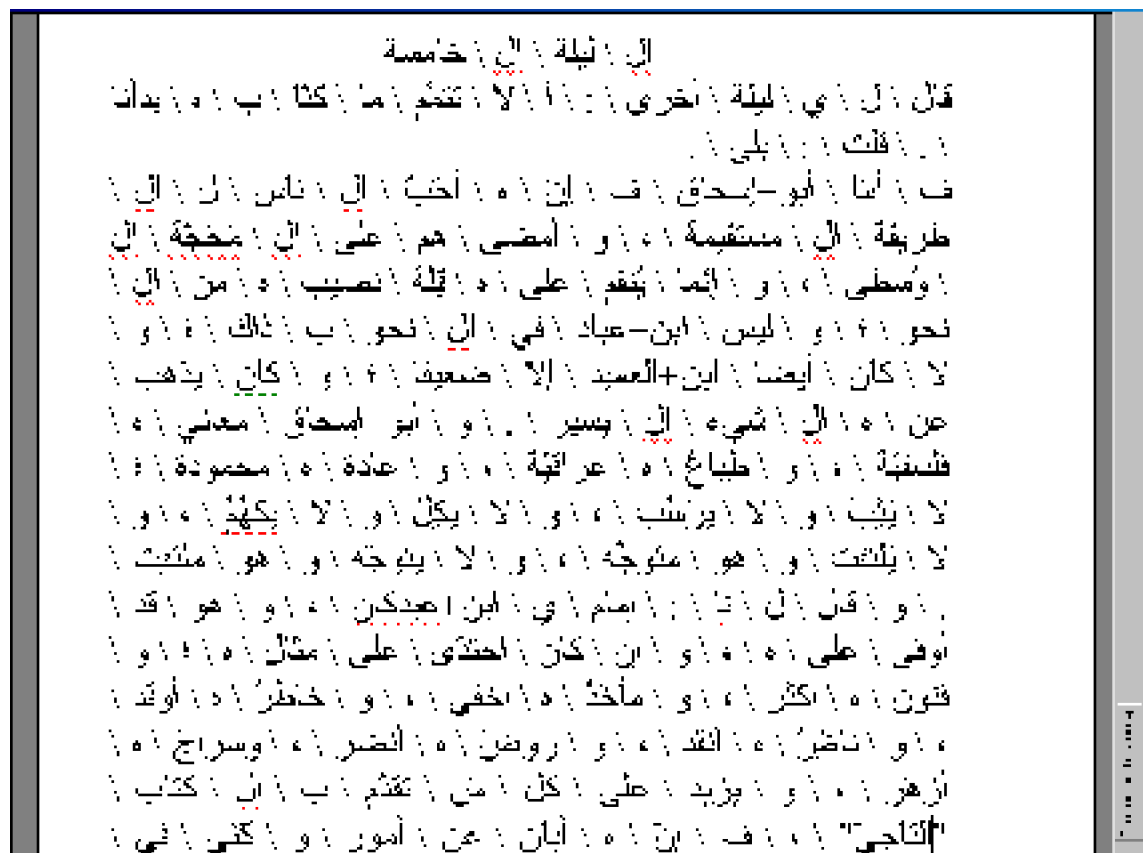 ال \ ليلة \ ال \ خامسة
قال \ ل \ ي \ ليلة \ أخرى \ : \ أ \ لا \ تتمّم \ ما \ كنّا \ ب \ ه \ بدأنا
\ . \ قلت \ : \ بلى \ .
ف \ أما \ أبو–إسحاق \ ف \ إن \ ه \ أحبّ \ ال \ ناس \ ل \ ال \
طريقة \ ال \ مستقيمة \ ، \ و \ أمضى \ هم \ على \ ال \ محجّة \ ال
\ وُسطى \ ، \ و \ إنّما \ يُنقم \ على \ ه \ قلّة \ نصيب \ ه \ من \ ال \
نحو \ ؛ \ و \ ليس \ ابن–عباد \ في \ ال \ نحو \ ب \ ذاك \ ؛ \ و \
لا \ كان \ أيضا \ ابن+العميد \ إلا \ ضعيفا \ ؛ \ و \ كان \ يذهب \
عن \ ه \ ال \ شيء \ ال \ يسير \ . \ و \ أبو \ إسحاق \ معاني \ ه \
فلسفيّة \ ، \ و \ طباعُ \ ه \ عراقيّة \ ، \ و \ عادة \ ه \ محمودة \ ؛
لا \ يثب \ و \ لا \ يرسُب \ ، \ و \ لا \ يكِلّ \ و \ لا \ يكهُمُ \ ، \ و \
لا \ يلتفت \ و \ هو \ متوجّه \ ، \ و \ لا \ يتوجّه \ و \ هو \ ملتفت \
. \ و \ قال \ ل \ نا \ : \ إمام \ ي \ ابن \ عبدكن \ ، \ و \ هو \ قد \
أوفى \ على \ ه \ ، \ و \ إن \ كان \ احتذى \ على \ مثال \ ه \ ؛ \ و \
فنون \ ه \ أكثر \ ، \ و \ مأخذُ \ ه \ أخفى \ ، \ و \ خاطرُ \ ه \ أوقد \
، \ و \ ناظرُ \ ه \ أنقد \ ، \ و \ روضُ \ ه \ أنضر \ ، \ وسراج \ ه \
أزهر \ ، \ و \ يزيد \ على \ كل \ من \ تقدّم \ ب \ ال \ كتاب \
"التاجيّ" \ ، \ ف \ إنّ \ ه \ أبان \ عن \ أمور \ و \ كنى \ في \